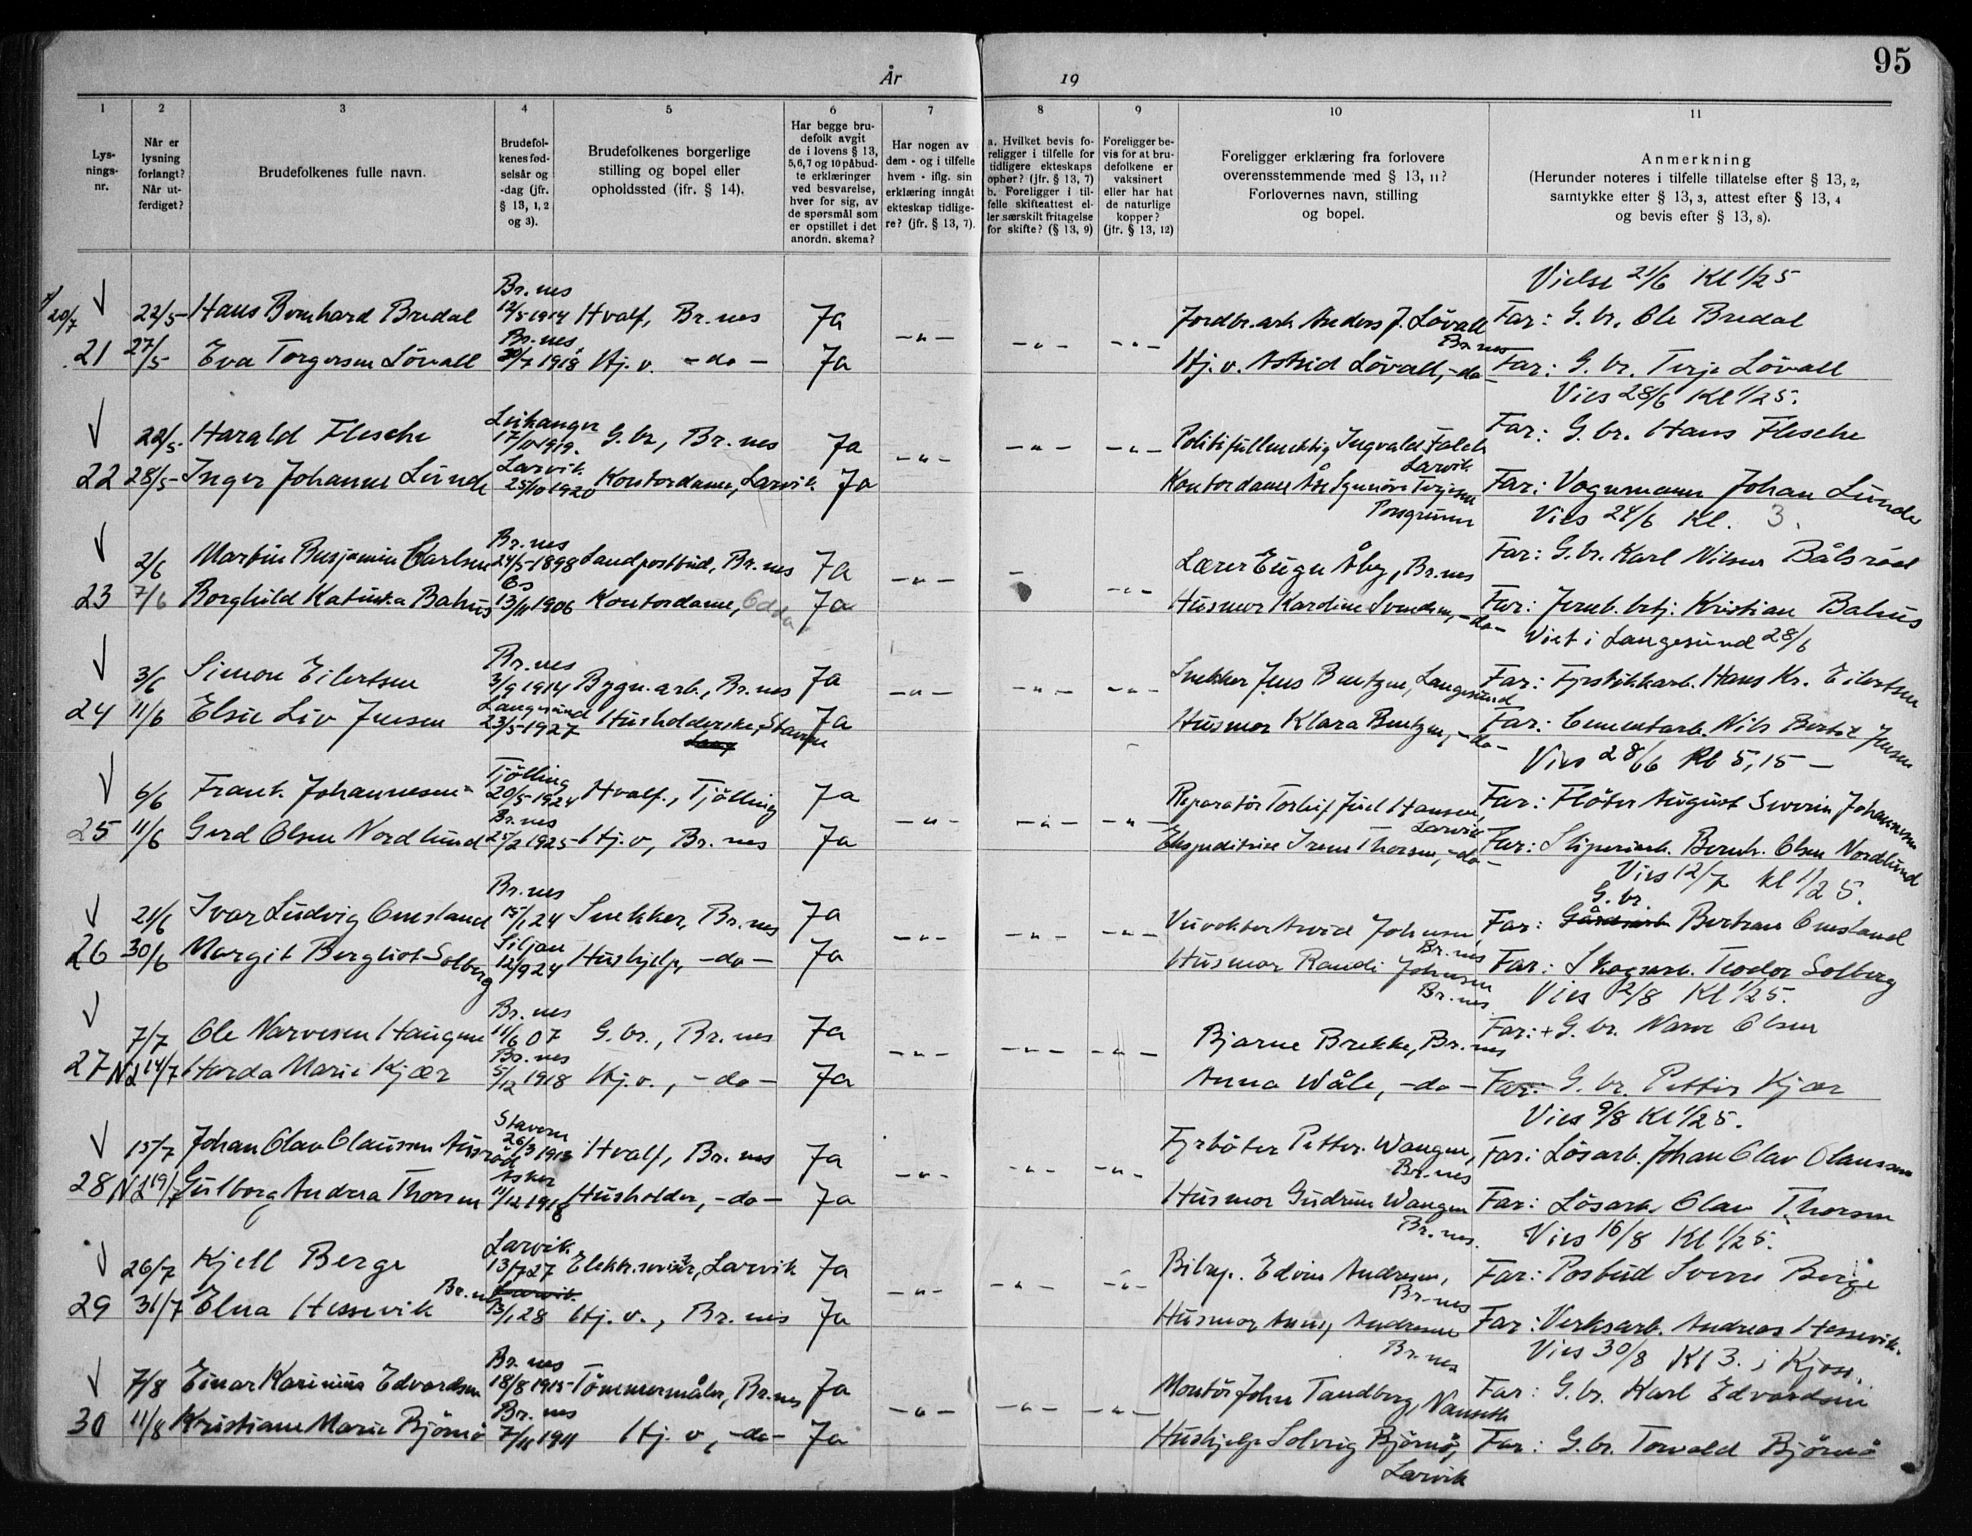 95
År 19
1 2 3 4 5 6 7 8 9 10 11
Lys-
nings-
nr.
Når er
lysning
forlangt?
Når ut-
ferdiget?
Brudefolkenes fulle navn.
Brudefol-
kenes fød-
selsår og
-dag (jfr.
§ 13, 1, 2
og 3).
Brudefolkenes borgerlige
stilling og bopel eller
opholdssted (ifr. § 14).
Har begge bru-
defolk avgit
de i lovens § 13,
5,6,7 og 10 påbud-
te erklæringer
ved besvarelse,
hver for sig, av
de spørsmål som
er opstillet i det
anordn. skema?
Har nogen av
dem - og i tilfelle
hvem - iflg. sin
erklæring inngått
ekteskap tidlige-
re? (jfr. § 13, 7).
a. Hvilket bevis fo-
religger i tilfelle for
tidligere ekteskaps
ophør? (jfr. § 13, 7)
b. Foreligger i til-
felle skifteattest el-
ler særskilt fritagelse
for skifte? (§ 13, 9)
Foreligger be-
vis for at bru-
defolkene er
vaksinert
eller har hat
de naturlige
kopper?
(jfr. § 13, 12)
Foreligger erklæring fra forlovere
overensstemmende med § 13, 11?
Forlovernes navn, stilling
og bopel.
Anmerkning
(Herunder noteres i tilfelle tillatelse efter § 13, 2,
samtykke etter § 13, 3, attest efter § 13, 4
og bevis efter § 13, 8).
Br.nes Vielse 21/6 Kl 1/2 5
20/7 22/5 Hans Bernhard Bredal 12/5 1914 Hvalf, Br.nes Ja Jordbr.arb Anders J. Løvall Br.nes Far: G.br. Ole Bredal
21 27/5 Eva Torgersen Løvall Br.nes /7 1918 Hj.v. -do- Ja Hj.v. Astrid Løvall, -do- Far: G.br. Terje Løvall
Vies 28/6 Kl 1/2 5.
22/5 Harald Flesche Leikanger 17/ 1919. G.br, Br.nes Ja Politifullmektig Ingvald Falch Larvik Far: G.br. Hans Flesche
22 28/5 Inger Johanne Lunde Larvik 25/10 1920 Kontordame, Larvik Ja Kontordame Porsgrunn Far: Vognmann Johan Lunde
Vies 24/6 Kl. 3.
2/6 Martin Benjamin Carlsen Br.nes 24/5 1898 Landpostbud, Br.nes Ja Lærer Åby, Br.nes Far: G.br. Karl Nilsen Bålsrød
23 7/6 Borghild Katinka Bahus 13/11 1906 Kontordame, Ja Husmor Kardine Svendsen, -do- Far: Jernb. btj. Kristian Bahus
Viet i Langesund 28/6
3/6 Simon Eilertsen Br.nes 3/9 1914 Bygn.arb., Br.nes Ja Snekker Jens Bentzen, Langesund Far: Fyrstikkarb. Hans Kr. Eilertsen
24 11/6 Elsie Liv Jensen Langesund 23/5 1927 Husholderske, Stavern Ja Husmor Klara Bentzen, -do- Far: Cementarb. Nils Bertil Jensen
Vies 28/6 Kl 5,15 -
6/6 Frank Johannesen Tjølling 20/5 1924 Hvalf., Tjølling Ja Reparatør Torleif Juel Hansen, Larvik Far: Fløter August Severin Johannesen
25 11/6 Gerd Olsen Nordlund Br.nes 25/2 1925 Hj.v, Br.nes Ja Ekspeditrise Irene Thorsen, -do- Far: Sliperiarb. Bernh. Olsen Nordlund
Vies 12/7 Kl 1/2 5.
21/6 Ivar Ludvig Omsland Br.nes 15/1 24 Snekker, Br.nes Ja Johnsen Br.nes Far: G.br. Gårdsarb Bertran Omsland
26 30/6 Margit Bergliot Solberg Siljan 12/9 24 Hushjelp, -do- Ja Husmor Randi Johnsen Br.nes Far: Skogsarb. Teodor Solberg
Vies 2/8 Kl 1/2 5.
7/7 Ole Narvesen Haugen Br.nes 11/6 07 G.br., Br.nes Ja Bjarne Brekke, Br.nes Far: + G.br. Narve Olsen
27 N.L 14/7 Harda Marie Kjær Br.nes 5/12 1918 Hj.v., -do- Ja Anna Wåle, -do- Far: G.br. Petter Kjær
Vies 9/8 Kl 1/2 5.
15/7 Johan Olav Claussen Ausrød Stavern 26/3 1913 Hvalf, Br.nes Ja Fyrbøter Petter Wangen, Br.nes Far: Løsarb. Johan Olav Olaussen
28 N.L 19/7 Gulborg Andrea Thorsen Asker 11/12 1918 Husholder, -do- Ja Husmor Gudrun Wangen Br.nes. Far: Løsarb. Olav Thorsen
Vies 16/8 Kl 1/2 5.
26/7 Kjell Berge Larvik 13/7 27 Elektr. Larvik Ja Edvin Andresen, Br.nes Far: Postbud Sverre Berge
29 31/7 Elna Hessevik Br.nes Larvik 13/1 28 Hj.v., Br.nes Ja Husmor Anny Andresen Br.nes Far: Verksarb. Andreas Hessevik.
Vies 30/8 Kl 3. i Kjose.
7/8 Einar Karinius Edvardsen Br.nes 18/8 1915 Tømmermåler, Br.nes Ja Montør John Tandberg, Nanseth Far: G.br. Karl Edvardsen
30 11/8 Kristiane Marie Bjørnø Br.nes 7/11 1911 Hj.v, -do- Ja Hushjelp Solveig Bjørnø, Larvik Far: G.br. Torvald Bjørnø